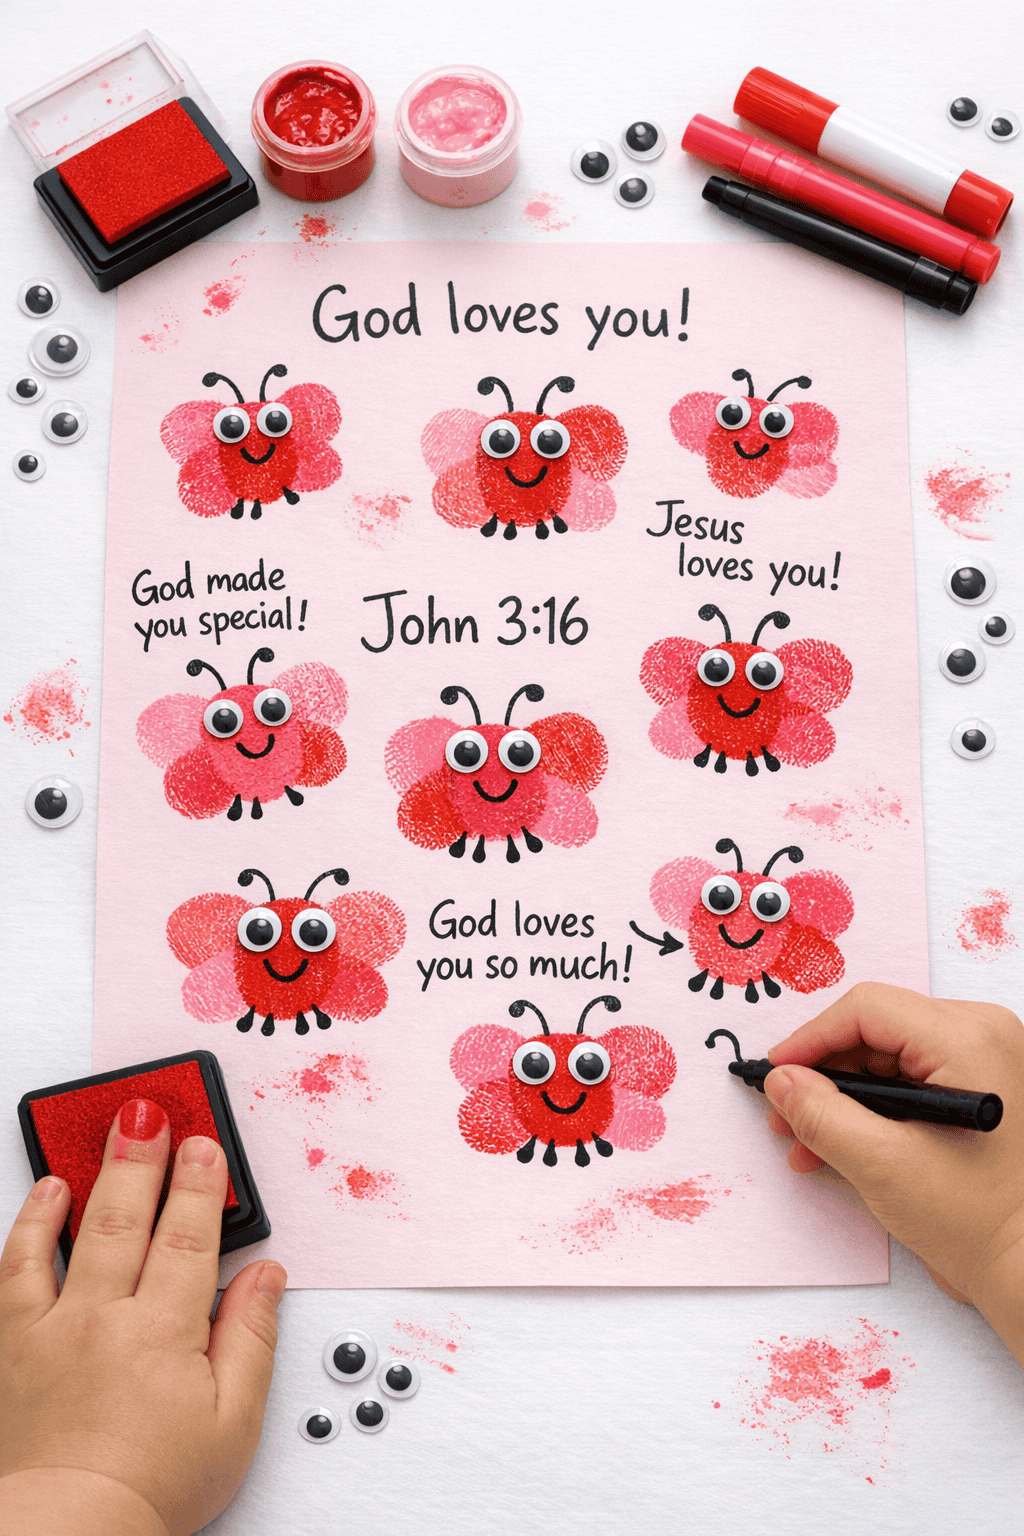 God loves you!
Jesus
loves you!
God made
you special!
John 3:16
God loves
you so much!